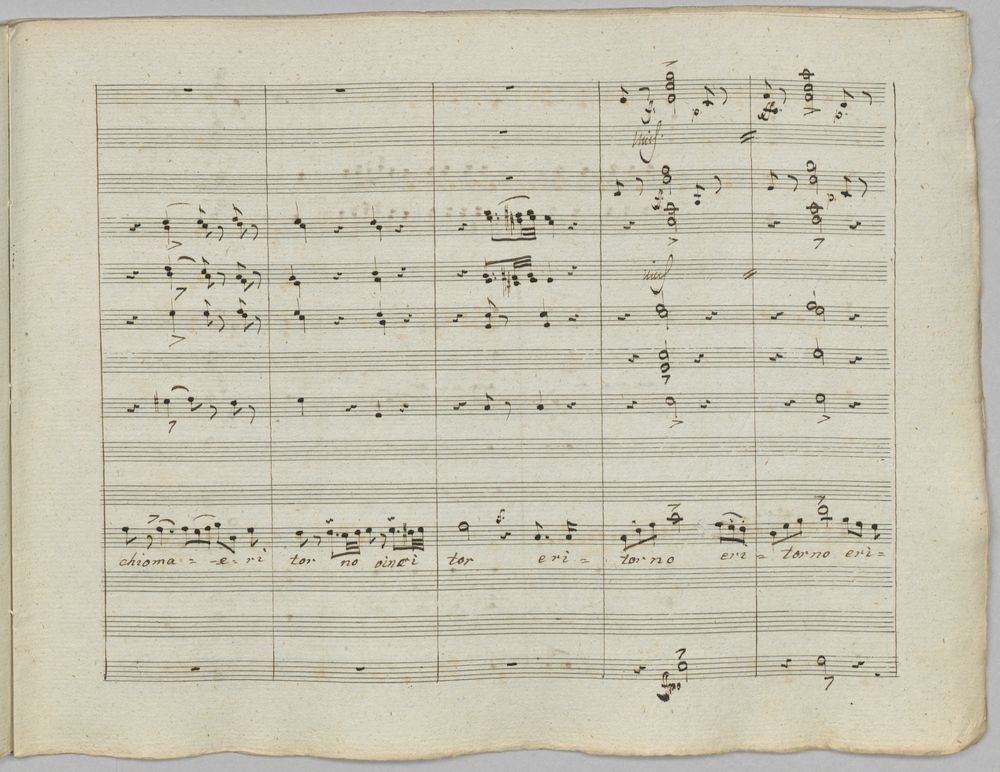 unis.
unis
chioma = -e- ri tor no oimeri tor eri = torno eri = torno eri =
fmo